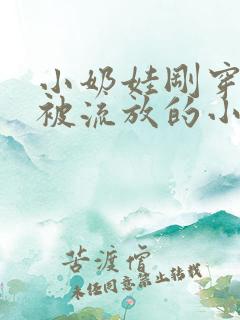 小奶娃刚穿
被流放的小
苦渡僧
未经同意禁止转载